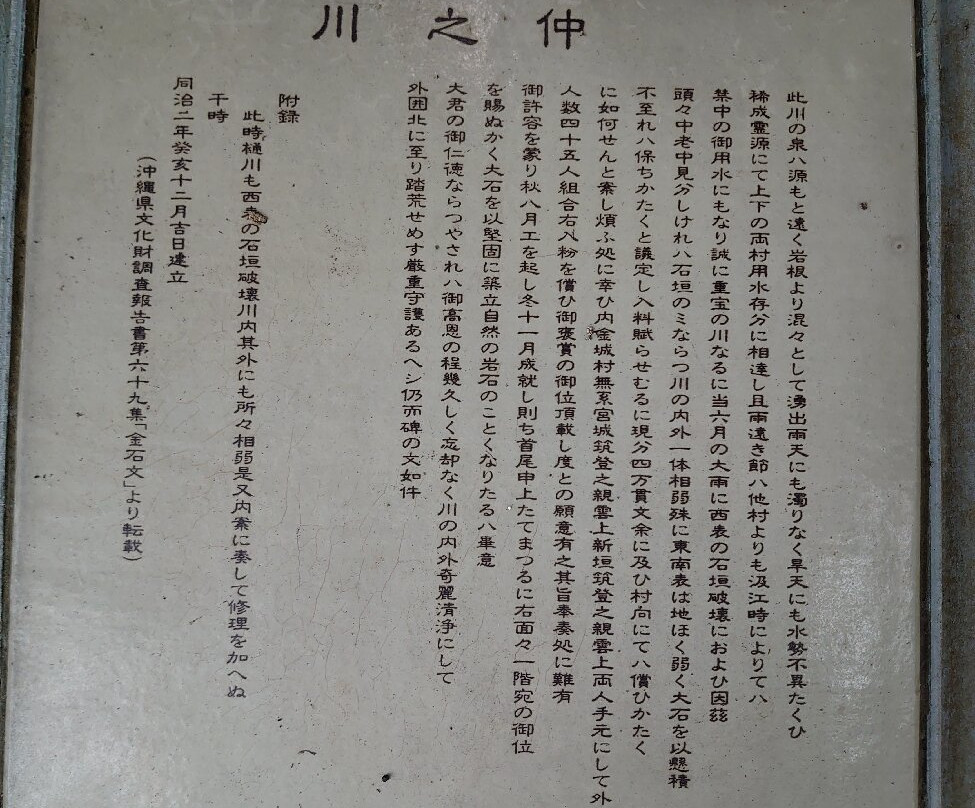 仲之川
此川の泉ハ源もと遠く岩根より混々として湧出雨天にも濁りなく旱天にも水勢不異たくひ
稀成霊源にて上下の両村用水存分に相達し且雨遠き節ハ他村よりも汲江時によりてハ
禁中の御用水にもなり誠に重宝の川なるに当六月の大雨に西表の石垣破壊におよひ因玆
頭々中老中見分しけれハ石垣のミならつ川の内外一体相弱殊に東南表は地ほく弱く大石を以懸積
不至れハ保ちかたくと議定し入料賦らせむるに現分四万貫文余に及ひ村向にてハ償ひかたく
に如何せんと案し煩ふ処に幸ひ内金城村無系宮城筑登之親雲上新垣筑登之親雲上両人手元にして外
人数四十五人組合右入粉を償ひ御褒賞の御位頂載し度との願意有之其旨奉奏処に難有
御許容を蒙り秋八月工を起し冬十一月成就し則ち首尾申上たてまつるに右面々一階宛の御位
を賜ぬかく大石を以堅固に築立自然の岩石のことくなりたるハ畢意
大君の御仁徳ならつやされハ御高恩の程幾久しく忘却なく川の内外奇麗清浄にして
外囲北に至り踏荒せめす厳重守護あるヘシ仍而碑の文如件
附録
此時樋川も西表の石垣破壊川内其外にも所々相弱是又内案に奏して修理を加へぬ
干時
同治二年癸亥十二月吉日建立
(沖縄県文化財調査報告書第六十九集「金石文」より転載)